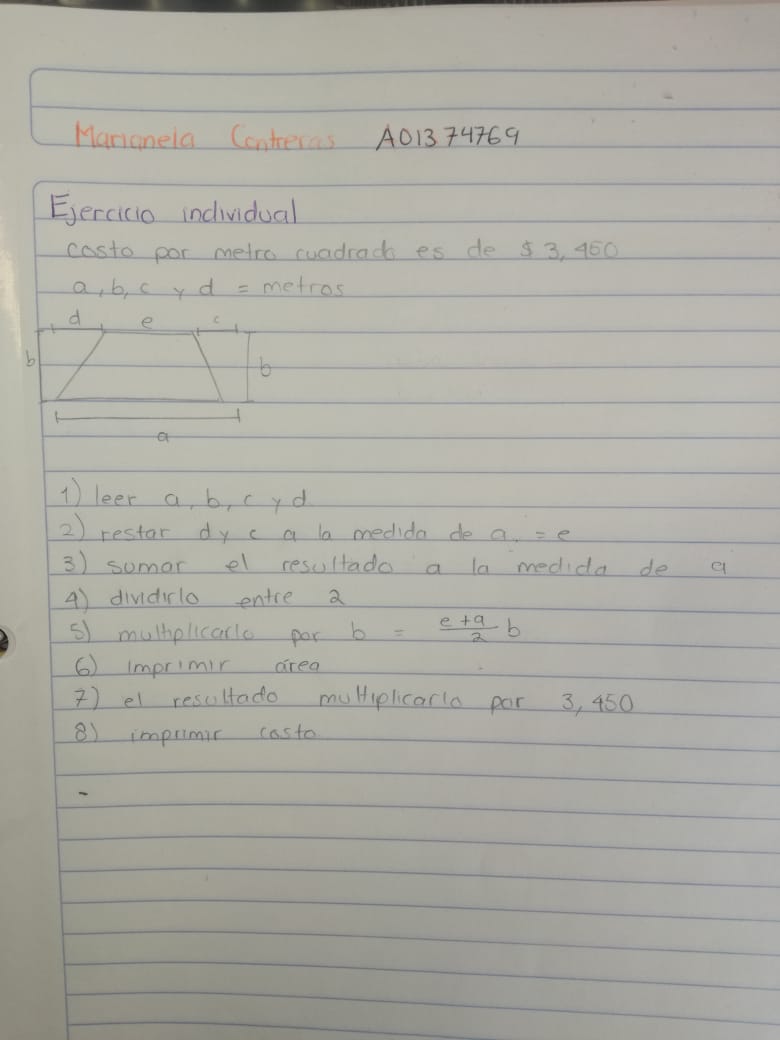 Marianela Contreras A01374769
Ejercicio individual
costo por metro cuadrado es de $ 3,450
a, b, c y d = metros
d e c
b b
a
1) leer a, b, c y d
2) restar d y c a la medida de a, = e
3) sumar el resultado a la medida de a
4) dividirlo entre 2
5) multiplicarlo por b = e+a/2 b
6) imprimir área
7) el resultado multiplicarlo por 3,450
8) imprimir costo
-